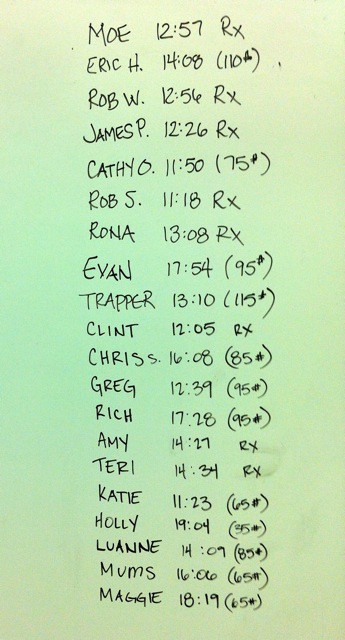 MOE 12:57 Rx
ERIC H. 14:08 (110#)
ROB W. 12:56 Rx
JAMES P. 12:26 Rx
CATHY O. 11:50 (75#)
ROB S. 11:18 Rx
RONA 13:08 Rx
EVAN 17:54 (95#)
TRAPPER 13:10 (115#)
CLINT 12:05 RX
CHRIS S. 16:08 (85#)
GREG 12:39 (95#)
RICH 17:28 (95#)
AMY 14:27 RX
TERI 14:34 RX
KATIE 11:23 (65#)
HOLLY 19:04 (35#)
LUANNE 14:09 (85#)
MUMS 16:06 (65#)
MAGGIE 18:19 (65#)